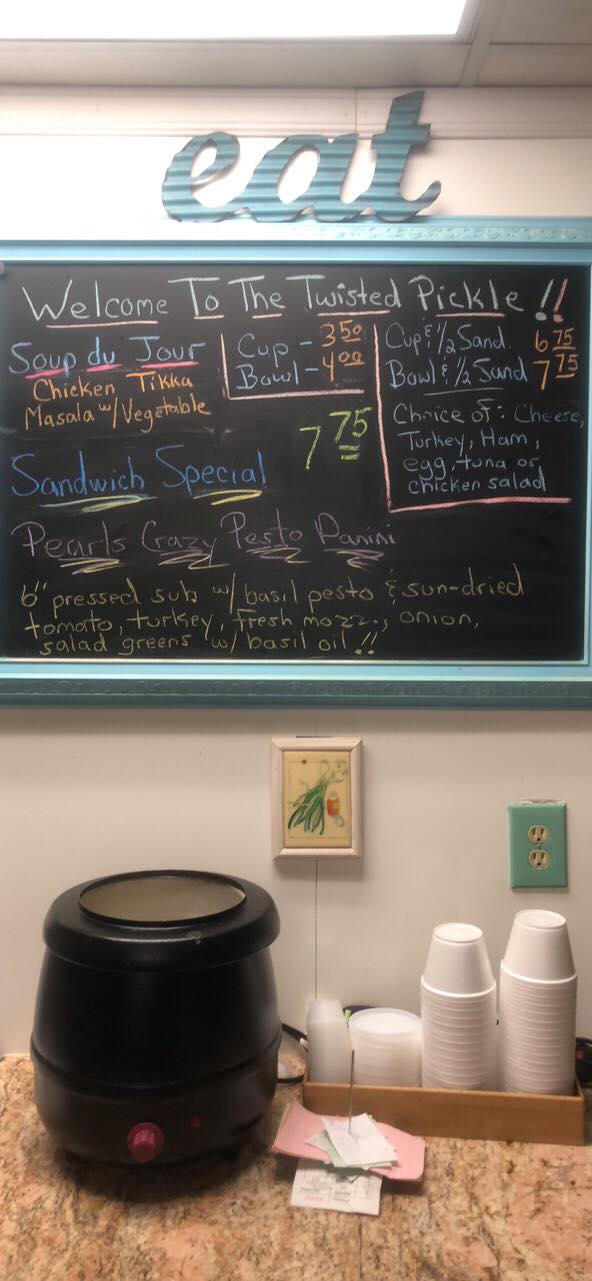 eat
Welcome To The Twisted Pickle !!
Soup du Jour
Chicken Tikka
Masala w/Vegetable
Cup - 3 50
Bowl - 4 00
Cup & 1/2 Sand. 6 75
Bowl & 1/2 Sand 7 75
Choice of: Cheese,
Turkey, Ham,
egg, tuna or
chicken salad
Sandwich Special
7 75
Pearls Crazy Pesto Panini
6" pressed sub w/ basil pesto & sun-dried
tomato, turkey, fresh mozz., onion,
salad greens w/ basil oil !!